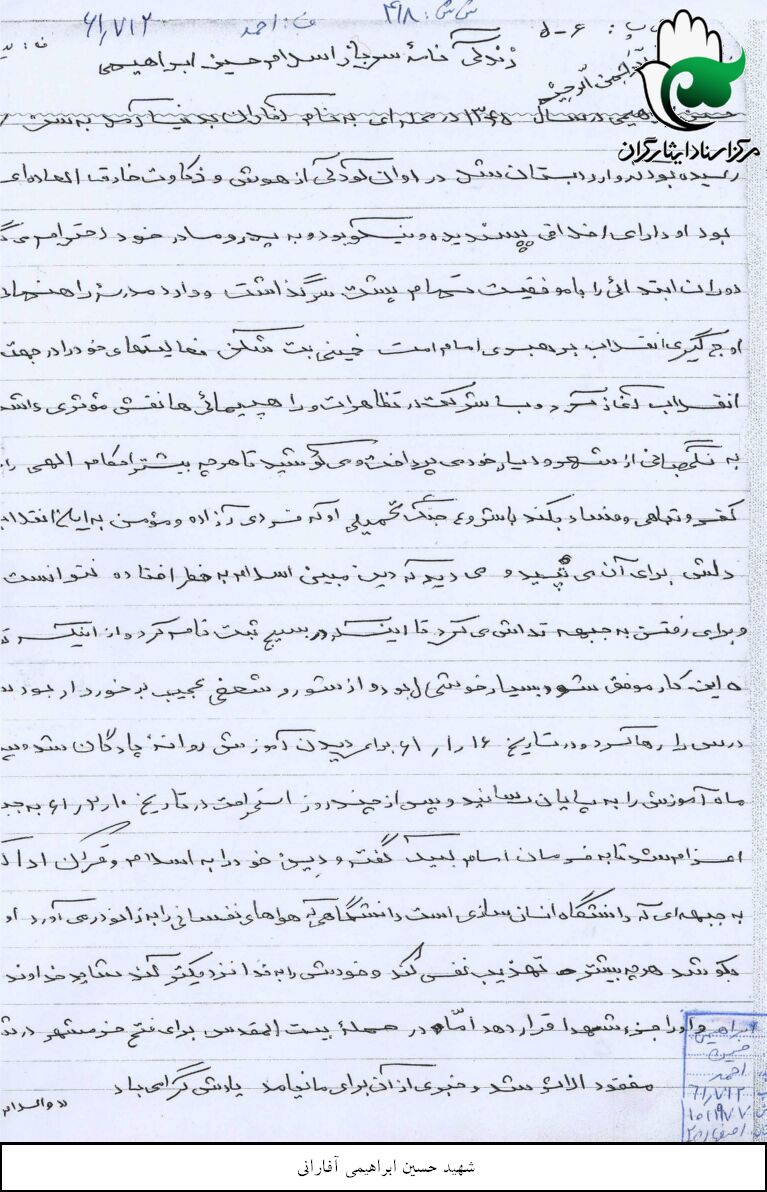 ش ش: ۴۹۸
پ: ۶-۵ ف: احمد ۶۱/۷/۱۲
زندگی نامهٔ سرباز اسلام حسین ابراهیمی
مرکز اسناد ایثارگران
در سال ۱۳۴۵ در محله ای به نام آفاران بدنیا آمد به سن
رسیده بود که وارد دبستان شد در اوان کودکی از هوش و ذکاوت خارق العاده ای
بود او دارای اخلاقی پسندیده و نیکو بود و به پدر و مادر خود احترام می
دوران ابتدائی را با موفقیت تمام پشت سر گذاشت و وارد مدرسهٔ راهنمائی
اوج گیری انقلاب به رهبری امام امت خمینی بت شکن فعالیتهای خود را در جهت
انقلاب آغاز کرد و با شرکت در تظاهرات و راهپیمائی ها نقش مؤثری داشت
به نگهبانی از شهر و دیار خود می پرداخت و می کوشید تا هر چه بیشتر احکام الهی را
کفر و تباهی و فساد بکند با شروع جنگ تحمیلی او که فردی آزاده و مؤمن به این انقلاب
دلش برای آن می تپید و می دید که دین مبین اسلام به خطر افتاده نتوانست
و برای رفتن به جبهه تلاش می کرد تا اینکه در بسیج ثبت نام کرد و از اینکه
این کار موفق شد بسیار خوشحال بود و از شور و شعفی عجیب برخوردار بود
درس را رها کرد و در تاریخ ۱۶/۱/۶۱ برای دیدن آموزش روانهٔ پادگان شد
ماه آموزش را به پایان رسانید و پس از چند روز استراحت در تاریخ ۱۰/۲/۶۱ به
اعزام شد تا به فرمان امام لبیک گفته و دین خود را به اسلام و قرآن ادا
به جبهه ای که دانشگاه انسان سازی است دانشگاهی که هواهای نفسانی را به زانو در می آورد او
بکوشد هر چه بیشتر تهذیب نفس کند و خودش را به خدا نزدیکتر کند شاید خداوند
او را جزء شهدا قرار دهد امّا در حملهٔ بیت المقدس برای فتح خرمشهر
مفقود الاثر شد و خبری از آن برای ما نیامد یادش گرامی باد
والسلام
ابراهیمی
حسین
احمد
۶۱/۷/۱۲
۱۰۱۹۷۷
اصفهان
شهید حسین ابراهیمی آفارانی